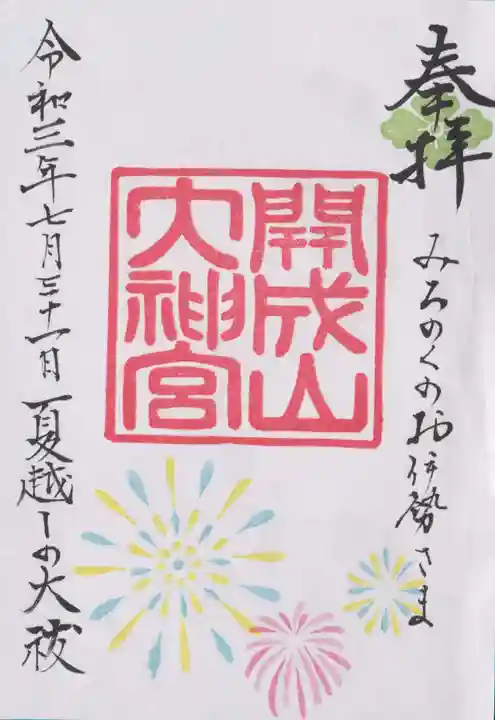 奉拝
みちのくのお伊勢さま
開成山
大神宮
令和三年七月三十一日 夏越しの大祓